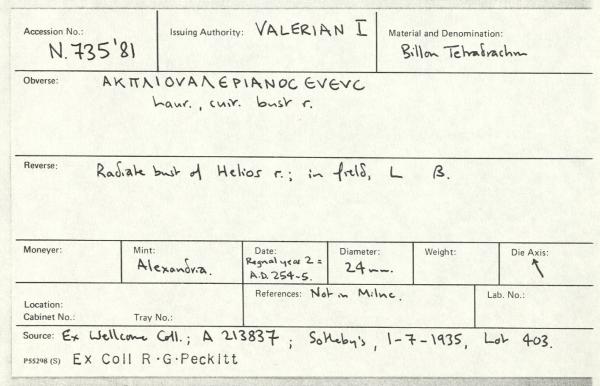 Accession No.: N.735'81
Issuing Authority: VALERIAN I
Material and Denomination: Billon Tetradrachm
Obverse: ΑΚΠΛΙΟΥΑΛΕΡΙΑΝΟCΕΥΕΥC
Laur., cuir. bust r.
Reverse: Radiate bust of Helios r.; in field, L B.
Moneyer:
Mint: Alexandria.
Date: Regnal year 2 =
A.D. 254-5.
Diameter: 24 mm.
Weight:
Die Axis: ↖
Location:
Cabinet No.: Tray No.:
References: Not in Milne.
Lab. No.:
Source: Ex Wellcome Coll.; A 213837; Sotheby's, 1-7-1935, Lot 403.
P55298 (S) Ex Coll R·G·Peckitt